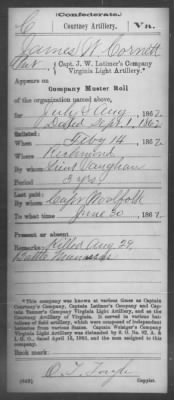 (Confederate.)
C Courtney Artillery. Va.
James W. Cornett
Pvt., Capt. J. W. Latimer's Company
Virginia Light Artillery.*
Appears on
Company Muster Roll
of the organization named above,
for July & Aug, 186 2.
Dated Sept. 1, 1862
Enlisted:
When Feby 14, 186 2.
Where Richmond
By whom Lieut Vaughan
Period 3 yrs.
Last paid:
By whom Capt
To what time June 30, 186 2.
Present or absent
Remarks: Killed Aug 29
Battle Manassas
*This company was known at various times as Captain
Courtney's Company, Captain Latimer's Company and Cap-
tain Tanner's Company Virginia Light Artillery, and as the
Courtney Artillery of Virginia. It served in various battalions
of field artillery, which were composed of independent
batteries from various States.
Book mark:
(642)
Copyist.